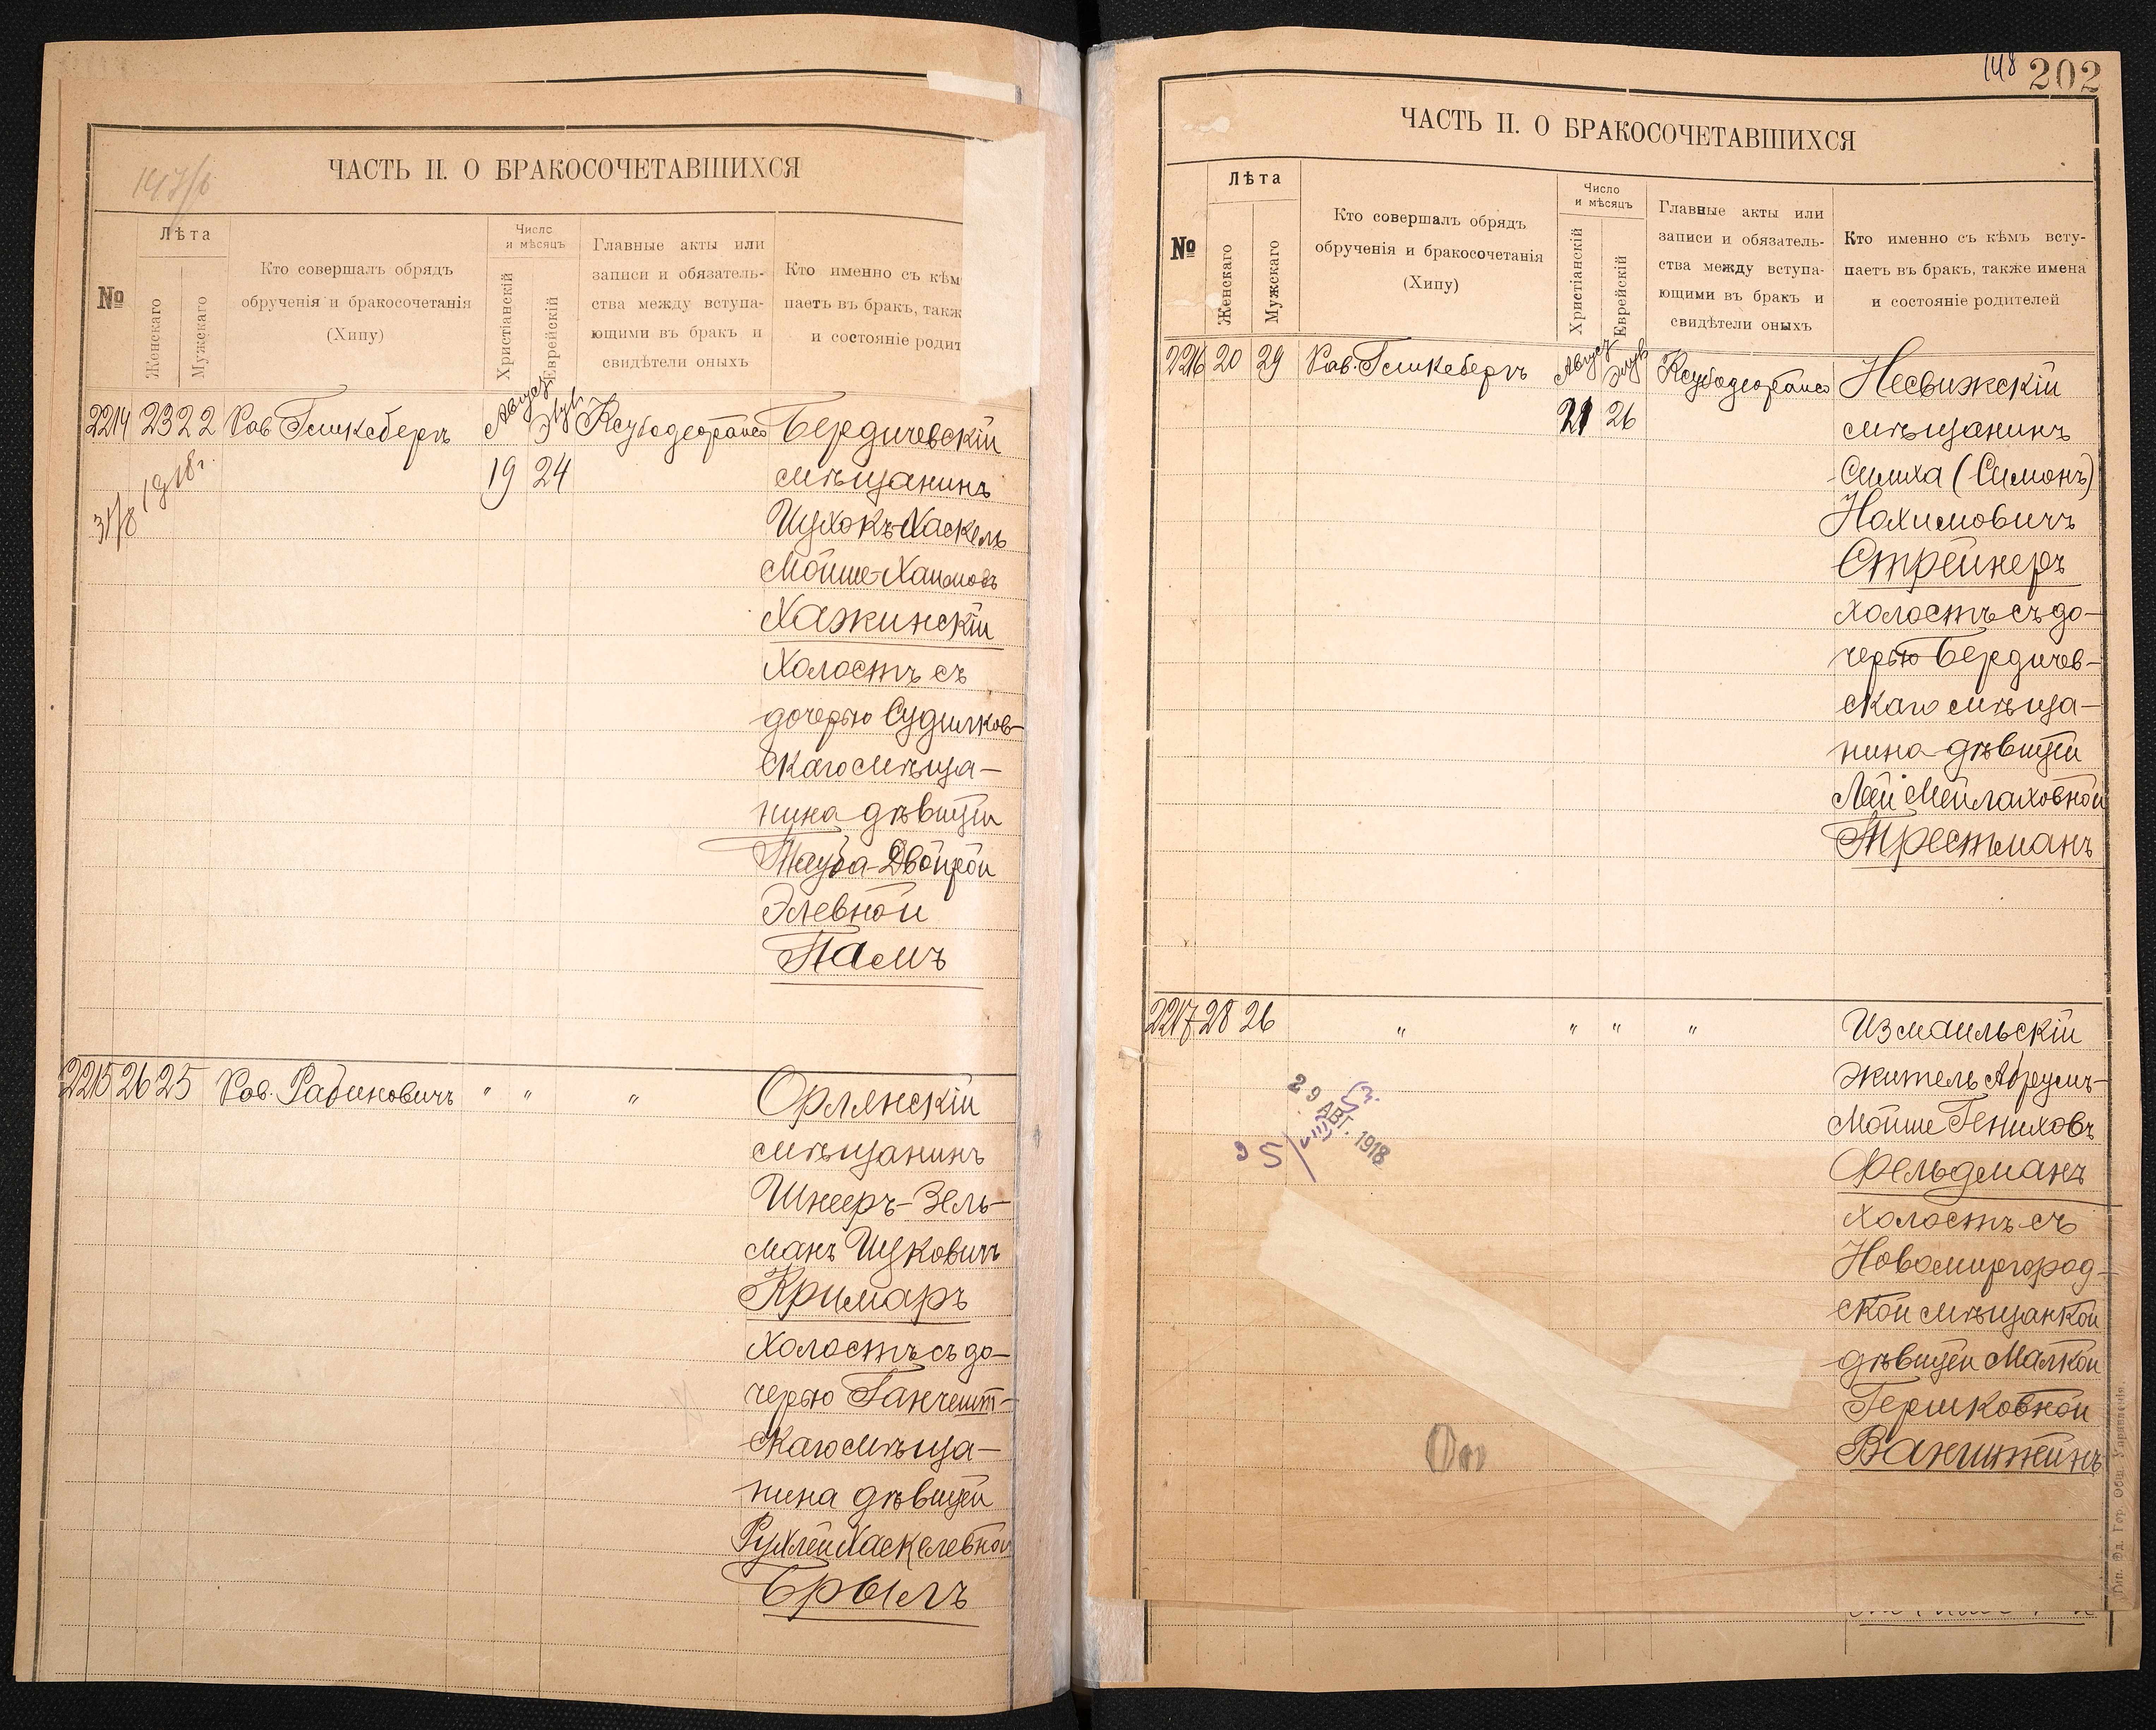 ЧАСТЬ II. О БРАКОСОЧЕТАВШИХСЯ
№
Лѣта
Женскаго
Мужскаго
Кто совершалъ обрядъ
обрученія и бракосочетанія
(Хипу)
Число
и мѣсяцъ
Христіанскій
Еврейскій
Главные акты или
записи и обязатель-
ства между вступа-
ющими въ бракъ и
свидѣтели оныхъ
Кто именно съ кѣм
паетъ въ бракъ, такж
и состояніе родит
2214 23 22 Рав Гликсбергъ
19 24
31/8 1918 г.
Бердичевскій
мѣщанинъ
Ицхокъ-Хаскель
Мойше-Хаимовъ
Хажинскій
Холостъ съ
дочерью Судилков-
скаго мѣща-
нина дѣвицей
Тауба-Двойрой
Элевной
Памъ
2215 26 25 Рав. Рабиновичъ " " "
Орлянскій
мѣщанинъ
Шнееръ-Зель-
манъ Ицковичъ
Кримаръ
Холостъ съ до-
черью Ганчешт-
скаго мѣща-
нина дѣвицей
Рухлей Хаскелевной
Брылъ
148 202
ЧАСТЬ II. О БРАКОСОЧЕТАВШИХСЯ
№
Лѣта
Женскаго
Мужскаго
Кто совершалъ обрядъ
обрученія и бракосочетанія
(Хипу)
Число
и мѣсяцъ
Христіанскій
Еврейскій
Главные акты или
записи и обязатель-
ства между вступа-
ющими въ бракъ и
свидѣтели оныхъ
Кто именно съ кѣмъ всту-
паетъ въ бракъ, также имена
и состояніе родителей
2216 20 29 Рав. Гликсбергъ
21 26
Несвижскій
мѣщанинъ
Симха (Симонъ)
Нохимовичъ
Стрейнеръ
холостъ съ до-
черью Бердичев-
скаго мѣща-
нина дѣвицей
Леей Мейлаховной
Трестманъ
2217 28 26 " " " "
Измаильскій
житель Абрумъ-
Мойше Гениховъ
Фельдманъ
холостъ съ
Новомиргород-
ской мѣщанкой
дѣвицей Малкой
Гершковной
Ванштейнъ
29 АВГ. 1918
Тип. Эд. Гор. Общ. Управленія.